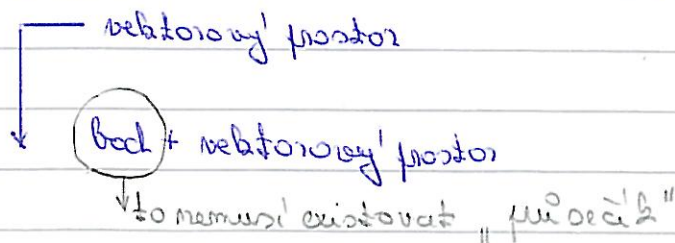 vektorový prostor
bod + vektorový prostor
to nemusí existovat „průsečík"